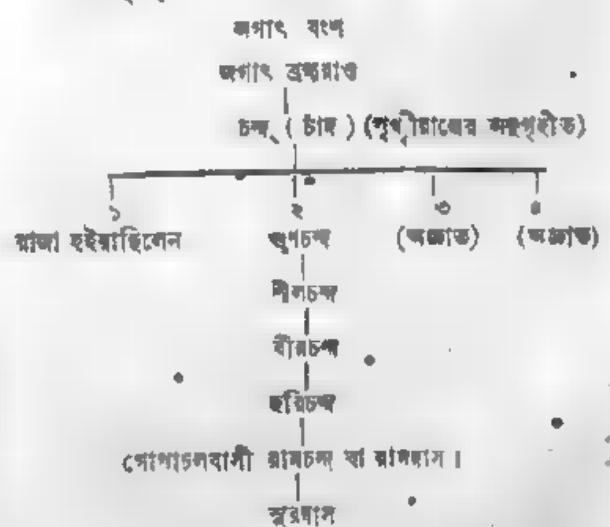 জগাৎ বংশ
জগাৎ ব্রহ্মরাও
চন্দ্ (চাঁদ) (পৃথ্বীরাজের অনুগৃহীত)
১ ২ ৩ ৪
রাজা হইয়াছিলেন গুণচন্দ্র (অজ্ঞাত) (অজ্ঞাত)
শীলচন্দ্র
বীরচন্দ্র
হরিচন্দ্র
গোপাচলবাসী রামচন্দ্র বা রামদাস।
সুরদাস